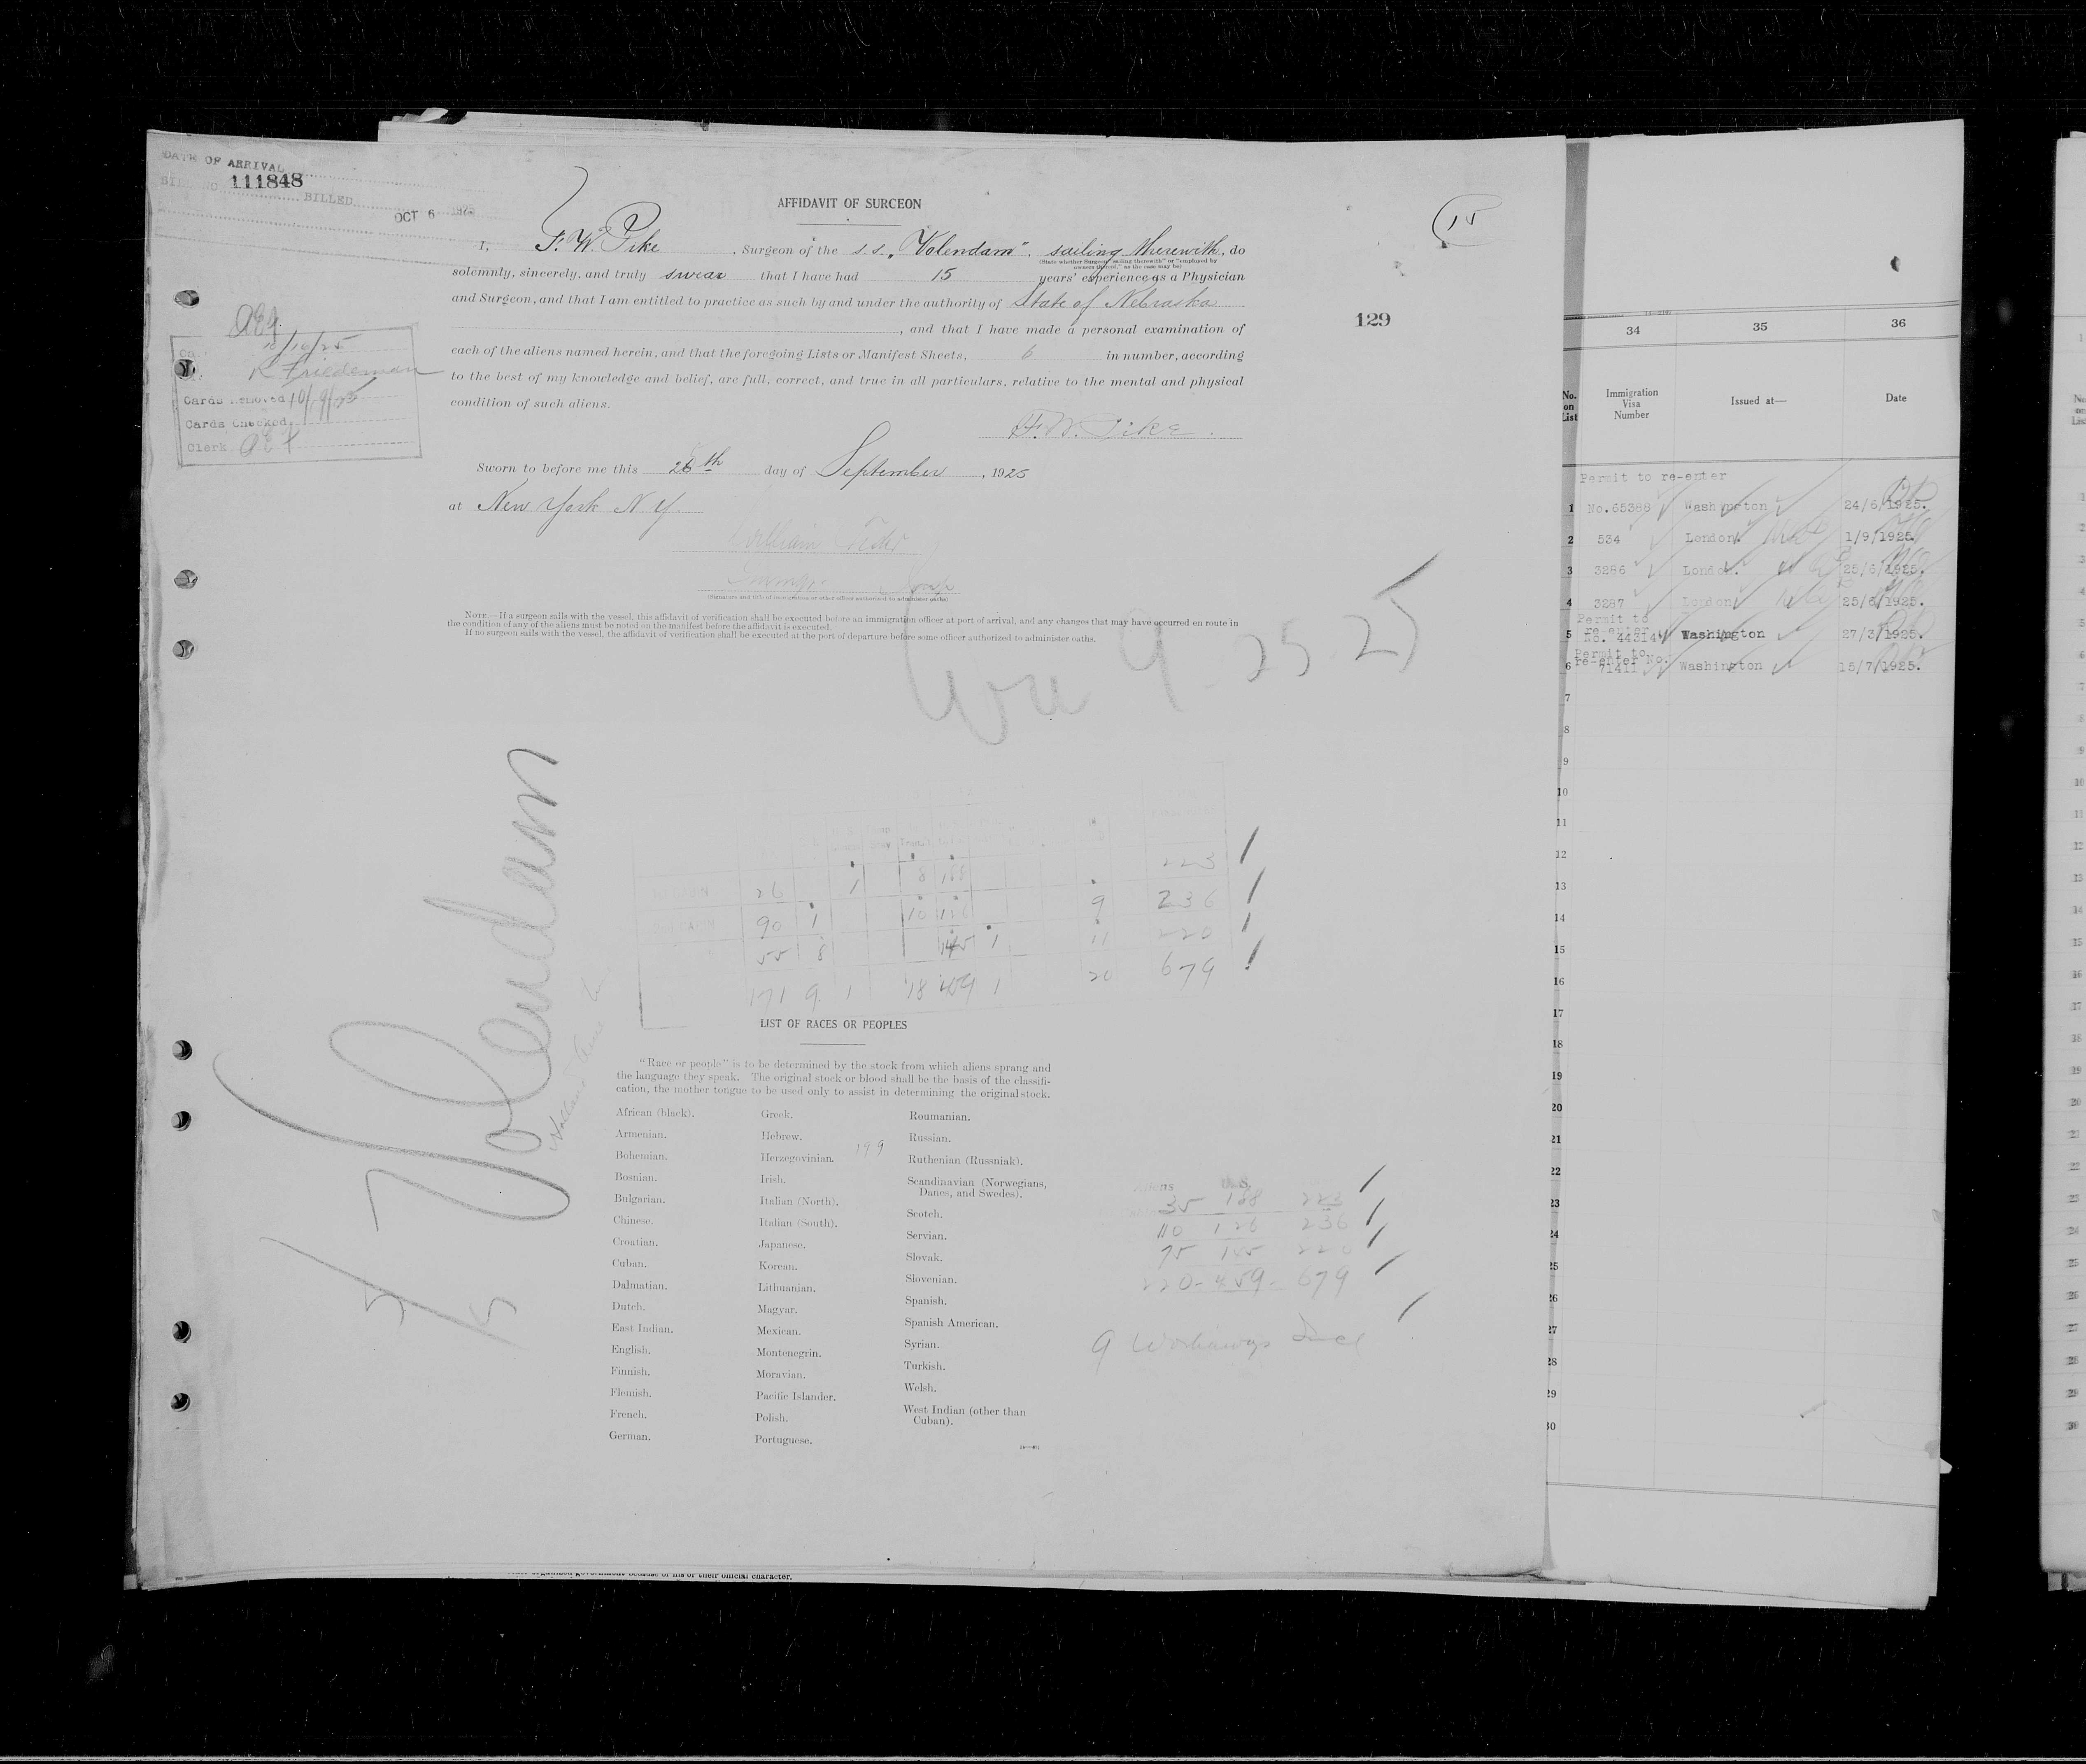 DATE OF ARRIVAL
111848
BILLED
OCT 6 1925
AFFIDAVIT OF SURGEON
15
I, F. W. Pike, Surgeon of the s.s. „Volendam", sailing therewith, do
(State whether Surgeon "sailing therewith" or "employed by
owners thereof," as the case may be)
solemnly, sincerely, and truly swear that I have had 15 years' experience as a Physician
and Surgeon, and that I am entitled to practice as such by and under the authority of State of Nebraska
, and that I have made a personal examination of
129
each of the aliens named herein, and that the foregoing Lists or Manifest Sheets, 6 in number, according
to the best of my knowledge and belief, are full, correct, and true in all particulars, relative to the mental and physical
condition of such aliens.
F. W. Pike.
10/16/25
R Friedeman
Cards Removed 10/9/25
Cards Checked
Clerk
Sworn to before me this 26th day of September, 1925
at New York N Y
William
(Signature and title of immigration or other officer authorized to administer oaths)
NOTE.—If a surgeon sails with the vessel, this affidavit of verification shall be executed before an immigration officer at port of arrival, and any changes that may have occurred en route in
the condition of any of the aliens must be noted on the manifest before the affidavit is executed.
If no surgeon sails with the vessel, the affidavit of verification shall be executed at the port of departure before some officer authorized to administer oaths.
9-25-25
Volendam
26 1 8 188 223
90 1 10 126 9 236
55 8 145 1 11 220
171 9 1 18 459 1 20 679
LIST OF RACES OR PEOPLES
"Race or people" is to be determined by the stock from which aliens sprang and
the language they speak. The original stock or blood shall be the basis of the classifi-
cation, the mother tongue to be used only to assist in determining the original stock.
African (black).
Armenian.
Bohemian.
Bosnian.
Bulgarian.
Chinese.
Croatian.
Cuban.
Dalmatian.
Dutch.
East Indian.
English.
Finnish.
Flemish.
French.
German.
Greek.
Hebrew.
Herzegovinian.
Irish.
Italian (North).
Italian (South).
Japanese.
Korean.
Lithuanian.
Magyar.
Mexican.
Montenegrin.
Moravian.
Pacific Islander.
Polish.
Portuguese.
199
Roumanian.
Russian.
Ruthenian (Russniak).
Scandinavian (Norwegians,
Danes, and Swedes).
Scotch.
Servian.
Slovak.
Slovenian.
Spanish.
Spanish American.
Syrian.
Turkish.
Welsh.
West Indian (other than
Cuban).
35 188 223
110 126 236
75 145 220
220-459-679
9 Workaways Incl
organized government because of his or their official character.
34 35 36
No. on List
Immigration Visa Number
Issued at—
Date
Permit to re-enter
1 No.65388 Washington 24/6/1925.
2 534 London. 1/9/1925.
3 3286 London. 25/6/1925.
4 3287 London 25/6/1925.
Permit to
re-enter
5 No. 44314 Washington 27/3/1925.
Permit to
re-enter No.
6 71411 Washington 15/7/1925.
7
8
9
10
11
12
13
14
15
16
17
18
19
20
21
22
23
24
25
26
27
28
29
30